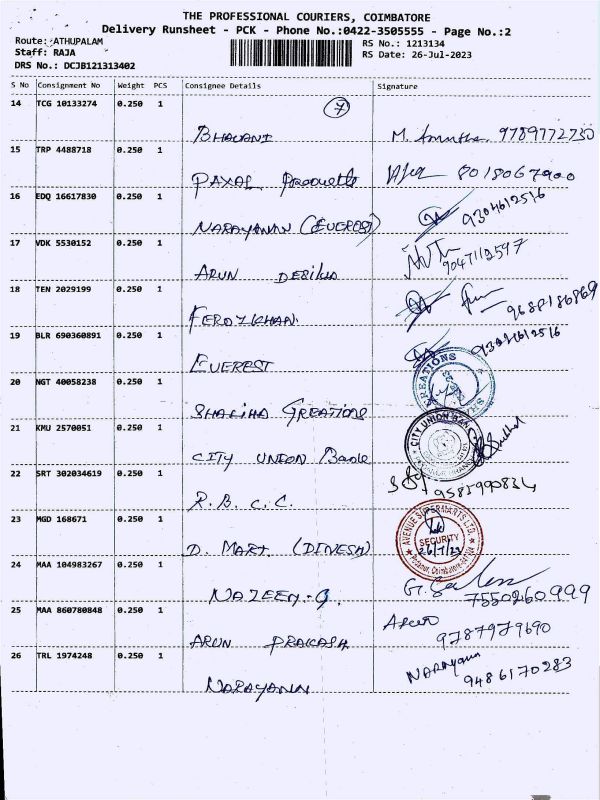 THE PROFESSIONAL COURIERS, COIMBATORE
Delivery Runsheet - PCK - Phone No.:0422-3505555 - Page No.:2
Route: ATHUPALAM
Staff: RAJA
DRS No.: DCJB121313402
RS No.: 1213134
RS Date: 26-Jul-2023
S No Consignment No Weight PCS Consignee Details Signature
7
14 TCG 10133274 0.250 1
BHAVANI M. 9789772730
15 TRP 4488718 0.250 1
PAXAL Products
16 EDQ 16617830 0.250 1
NARAYANAN (EVEREST)
17 VDK 5530152 0.250 1
ARUN 9047112597
18 TEN 2029199 0.250 1
FEROZKHAN.
19 BLR 690360891 0.250 1
EVEREST
20 NGT 40058238 0.250 1
CREATIONS
SHALIHA CREATIONS
21 KMU 2570051 0.250 1
CITY UNION BANK
CITY UNION Bank
22 SRT 302034619 0.250 1
R.B.C.C. 9585990834
23 MGD 168671 0.250 1
AVENUE SUPERMARTS LTD.
SECURITY
26/7/23
D. MART (DINESH)
24 MAA 104983267 0.250 1
NAZEEM.A. 7550260999
25 MAA 860780848 0.250 1
ARUN PRAKASH Arun 9787979690
26 TRL 1974248 0.250 1
NARAYANAN Narayanan 9486170283